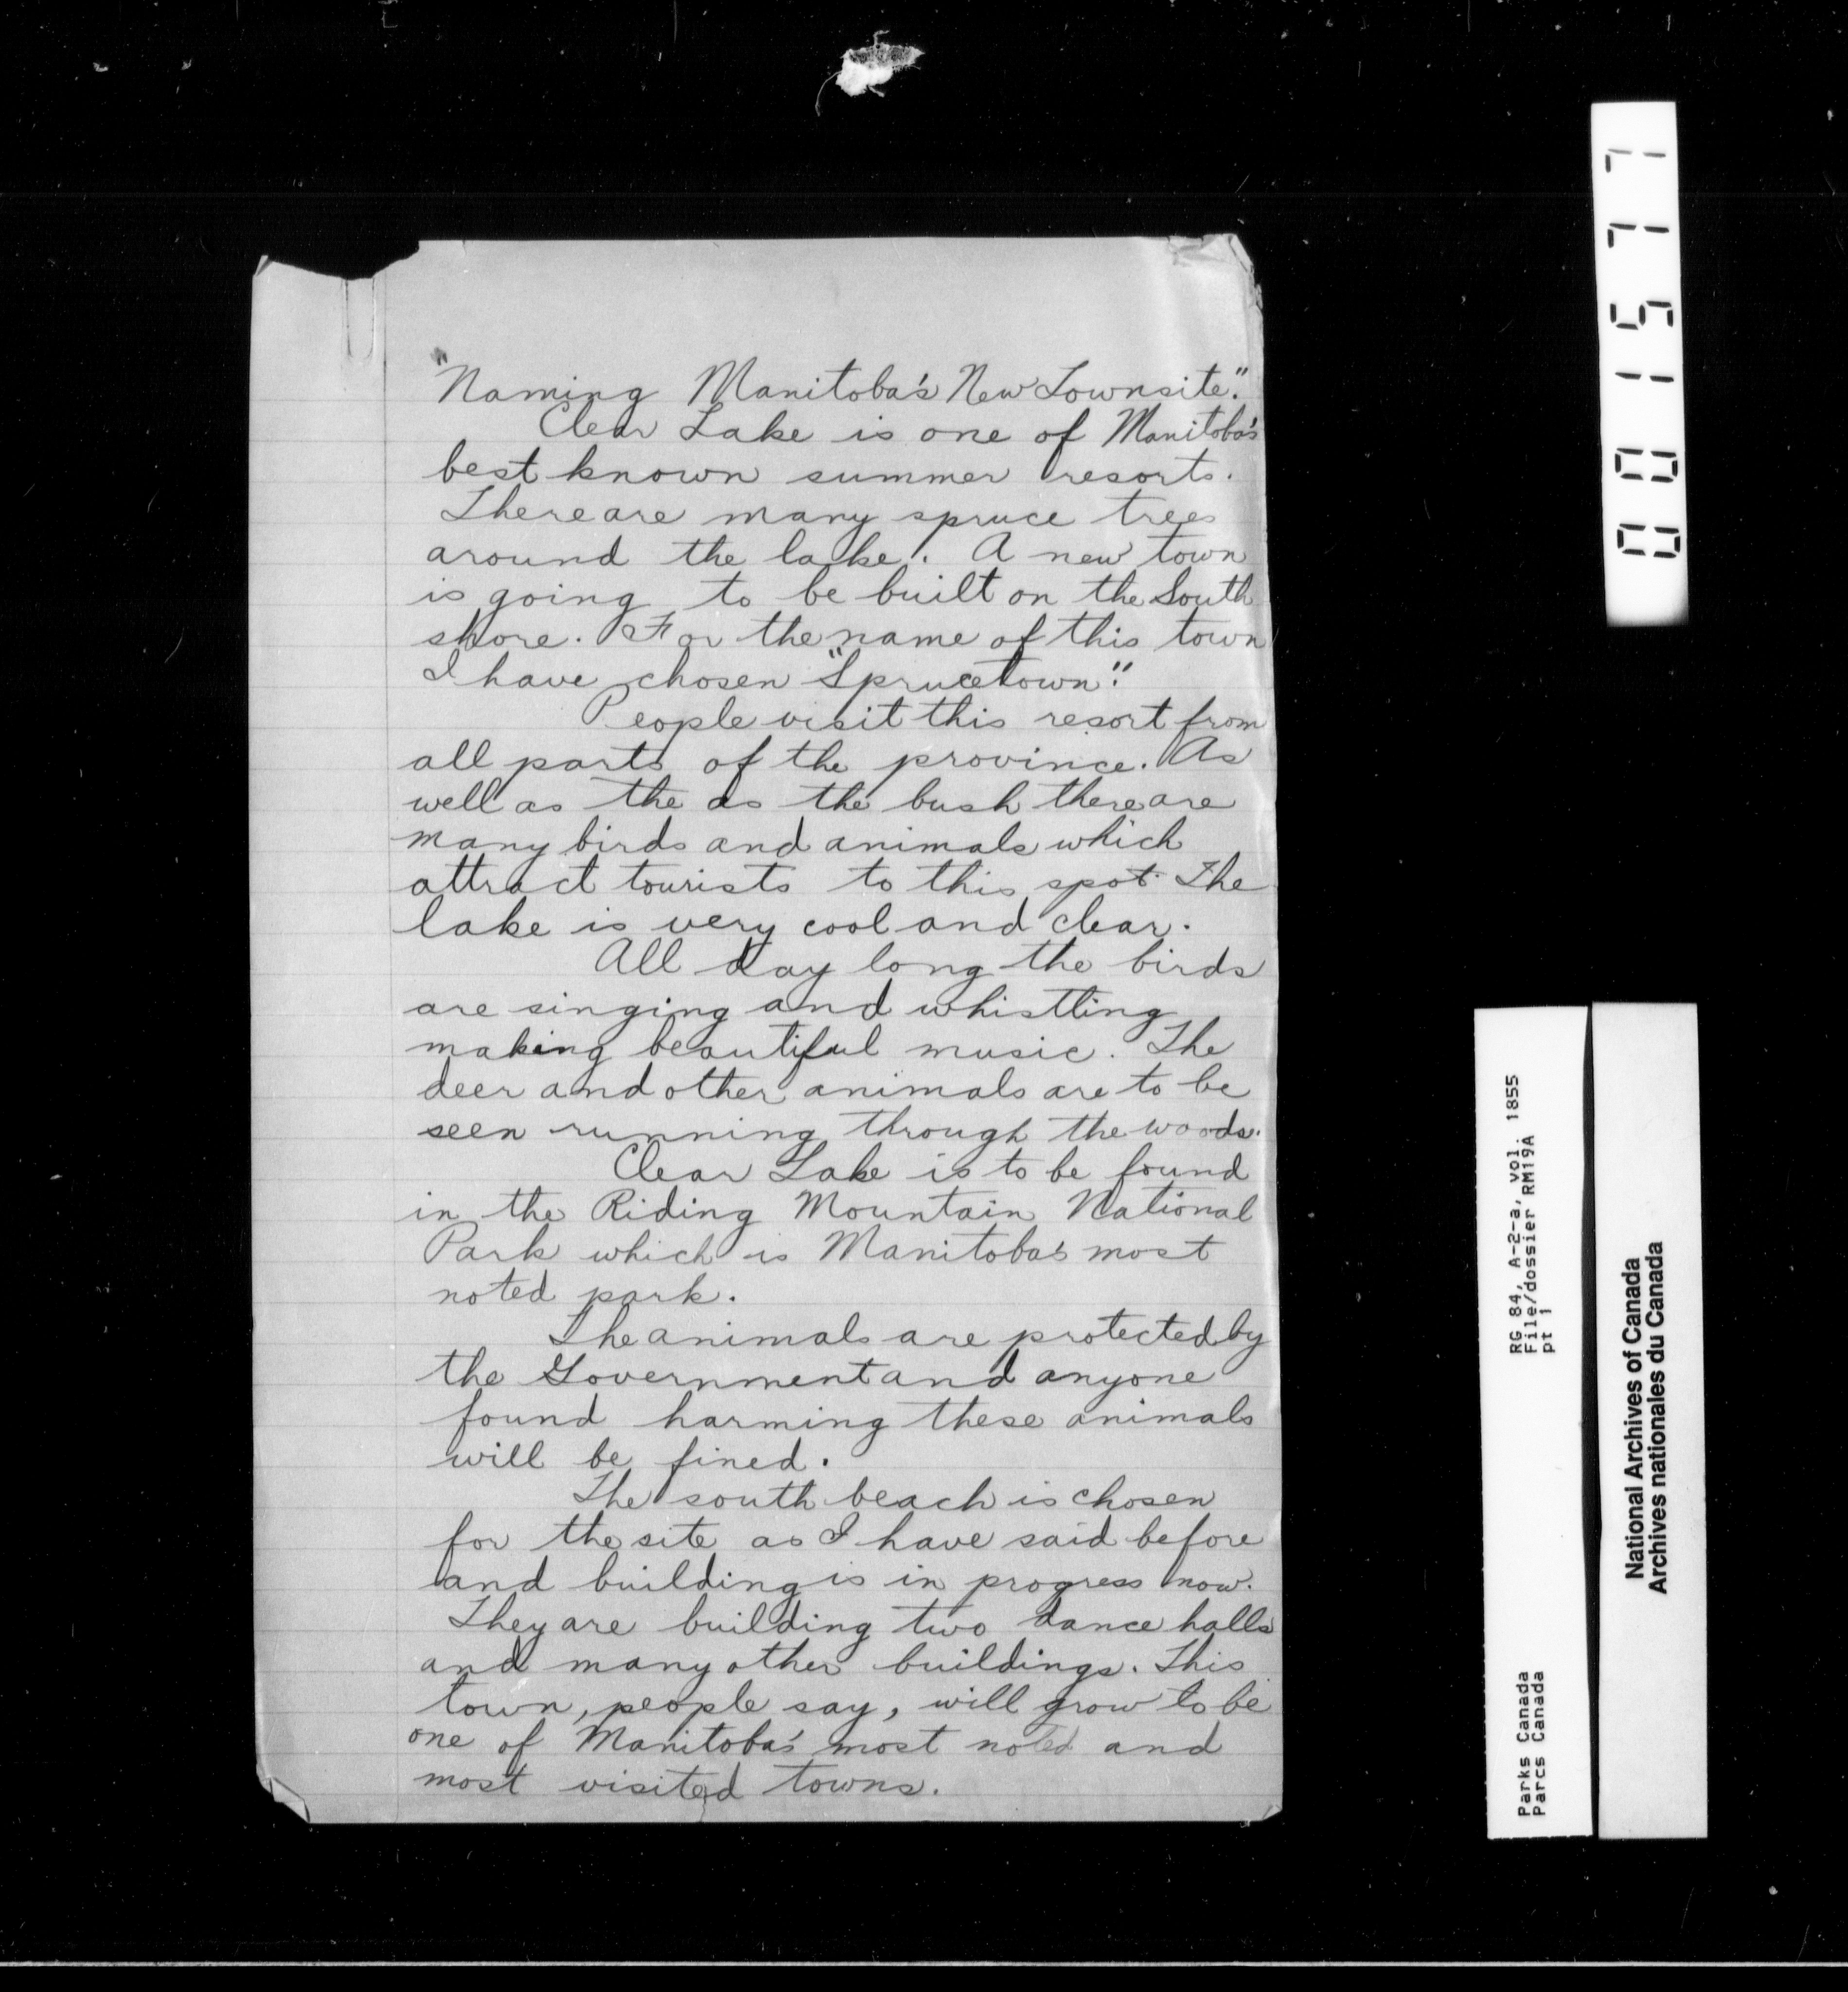 "Naming Manitoba's New Townsite."
Clear Lake is one of Manitoba's
best known summer resorts.
There are many spruce trees
around the lake. A new town
is going to be built on the South
shore. For the name of this town
I have chosen "Sprucetown."
People visit this resort from
all parts of the province. As
well as the as the bush there are
many birds and animals which
attract tourists to this spot. The
lake is very cool and clear.
All day long the birds
are singing and whistling
making beautiful music. The
deer and other animals are to be
seen running through the woods.
Clear Lake is to be found
in the Riding Mountain National
Park which is Manitoba's most
noted park.
The animals are protected by
the Government and anyone
found harming these animals
will be fined.
The south beach is chosen
for the site as I have said before
and building is in progress now.
They are building two dance halls
and many other buildings. This
town, people say, will grow to be
one of Manitoba's most noted and
most visited towns.
001577
RG 84, A-2-a, vol. 1855
File/dossier RM19A
pt 1
Parks Canada
Parcs Canada
National Archives of Canada
Archives nationales du Canada